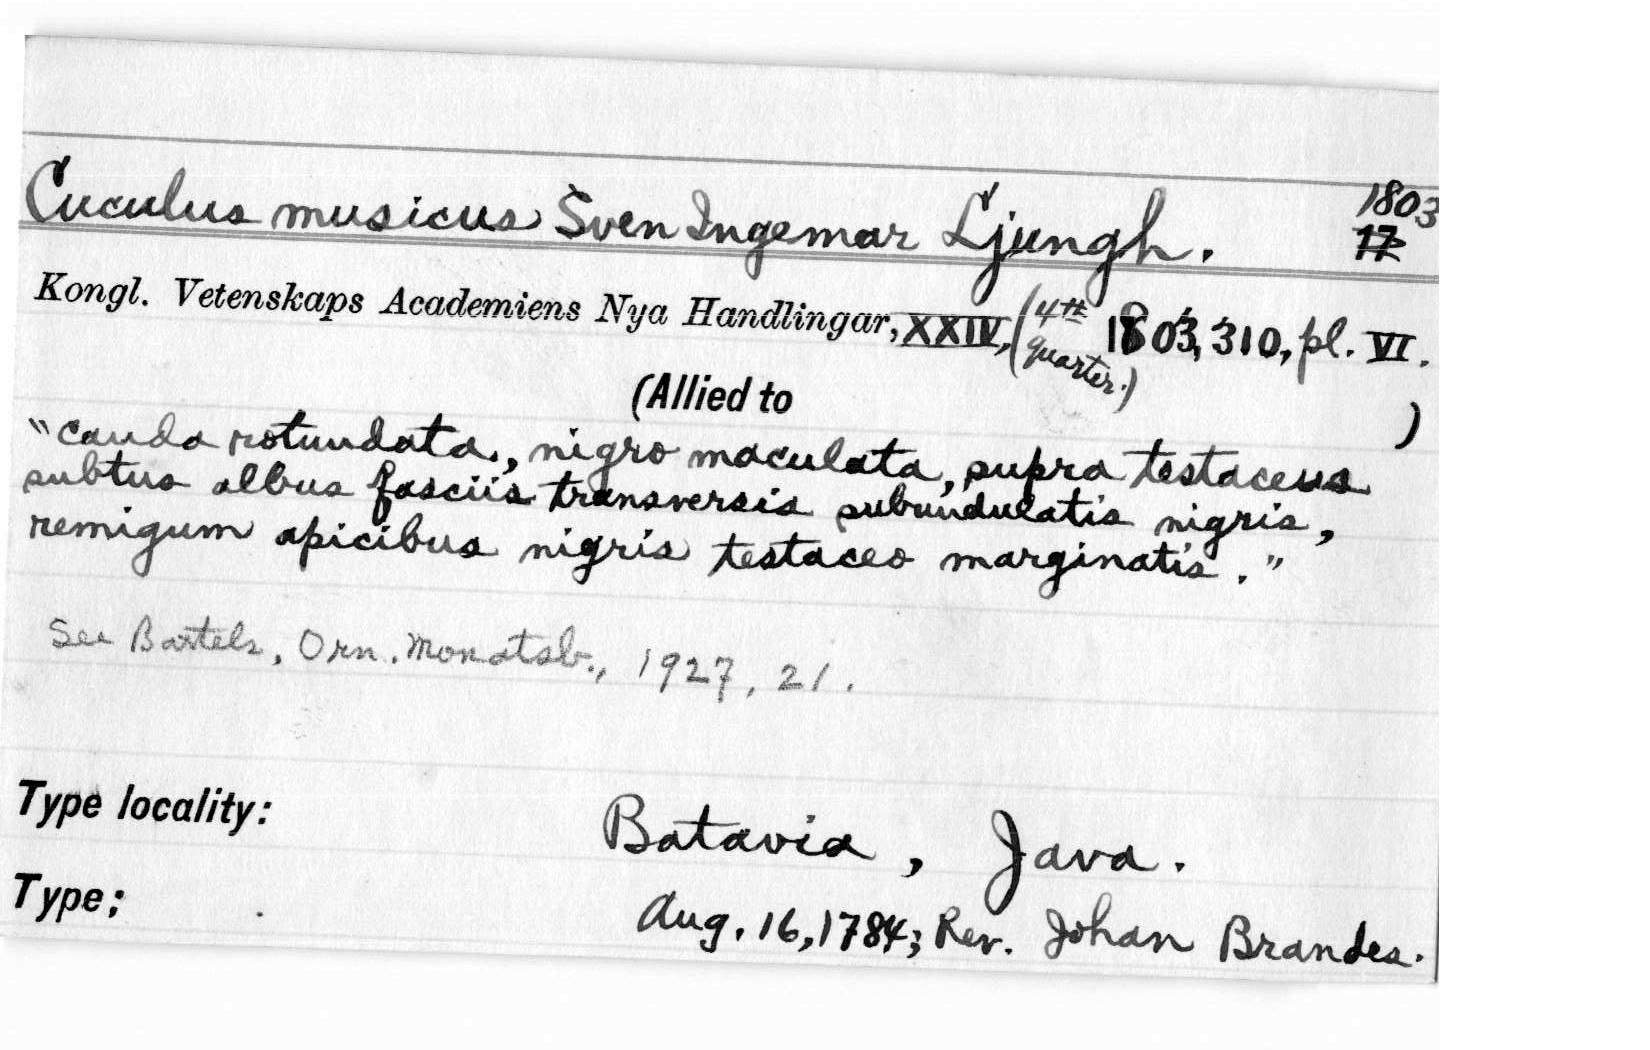 Cuculus musicus Sven Ingemar Ljungh. 1803
17
Kongl. Vetenskaps Academiens Nya Handlingar, XXIV, (4th quarter.) 1803, 310, pl. VI.
(Allied to )
"Cauda rotundata., nigro maculata, supra testaceus
subtus albus fasciis transversis subundulatis nigris,
remigum apicibus nigris testaceo marginatis."
See Bartels, Orn. Monatsb., 1927, 21.
Type locality: Batavia, Java.
Type; Aug. 16, 1784; Rev. Johan Brandes.